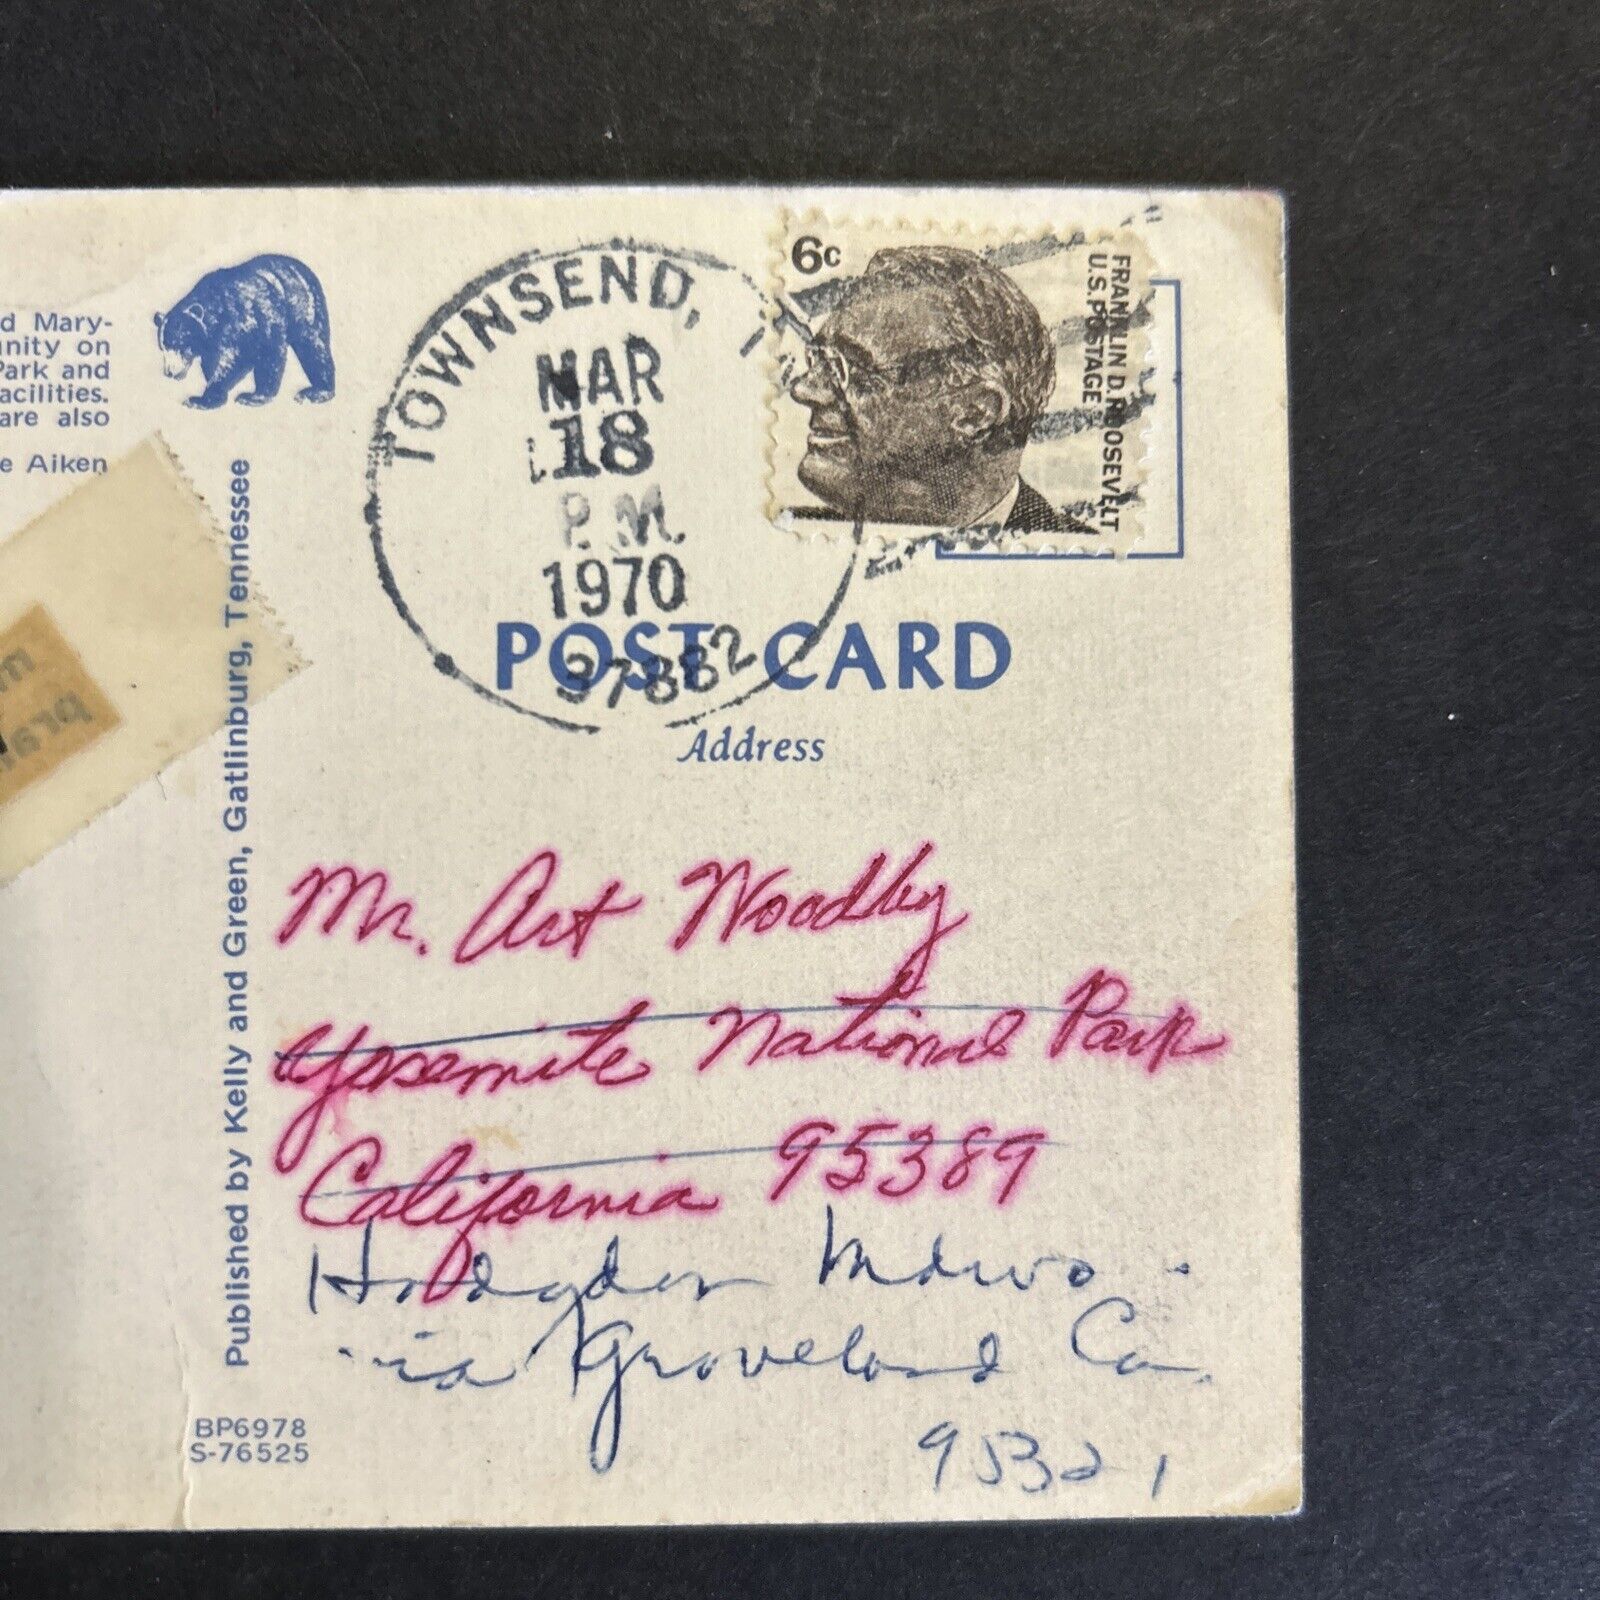 d Mary-
unity on
Park and
acilities.
are also
e Aiken
TOWNSEND, T
MAR
18
P.M.
1970
37882
6c
FRANKLIN D. ROOSEVELT
U.S. POSTAGE
POST CARD
Address
Published by Kelly and Green, Gatlinburg, Tennessee
Mr. Art Woodley
Yosemite National Park
California 95389
Hodgdon
via Groveland Ca.
95321
BP6978
S-76525